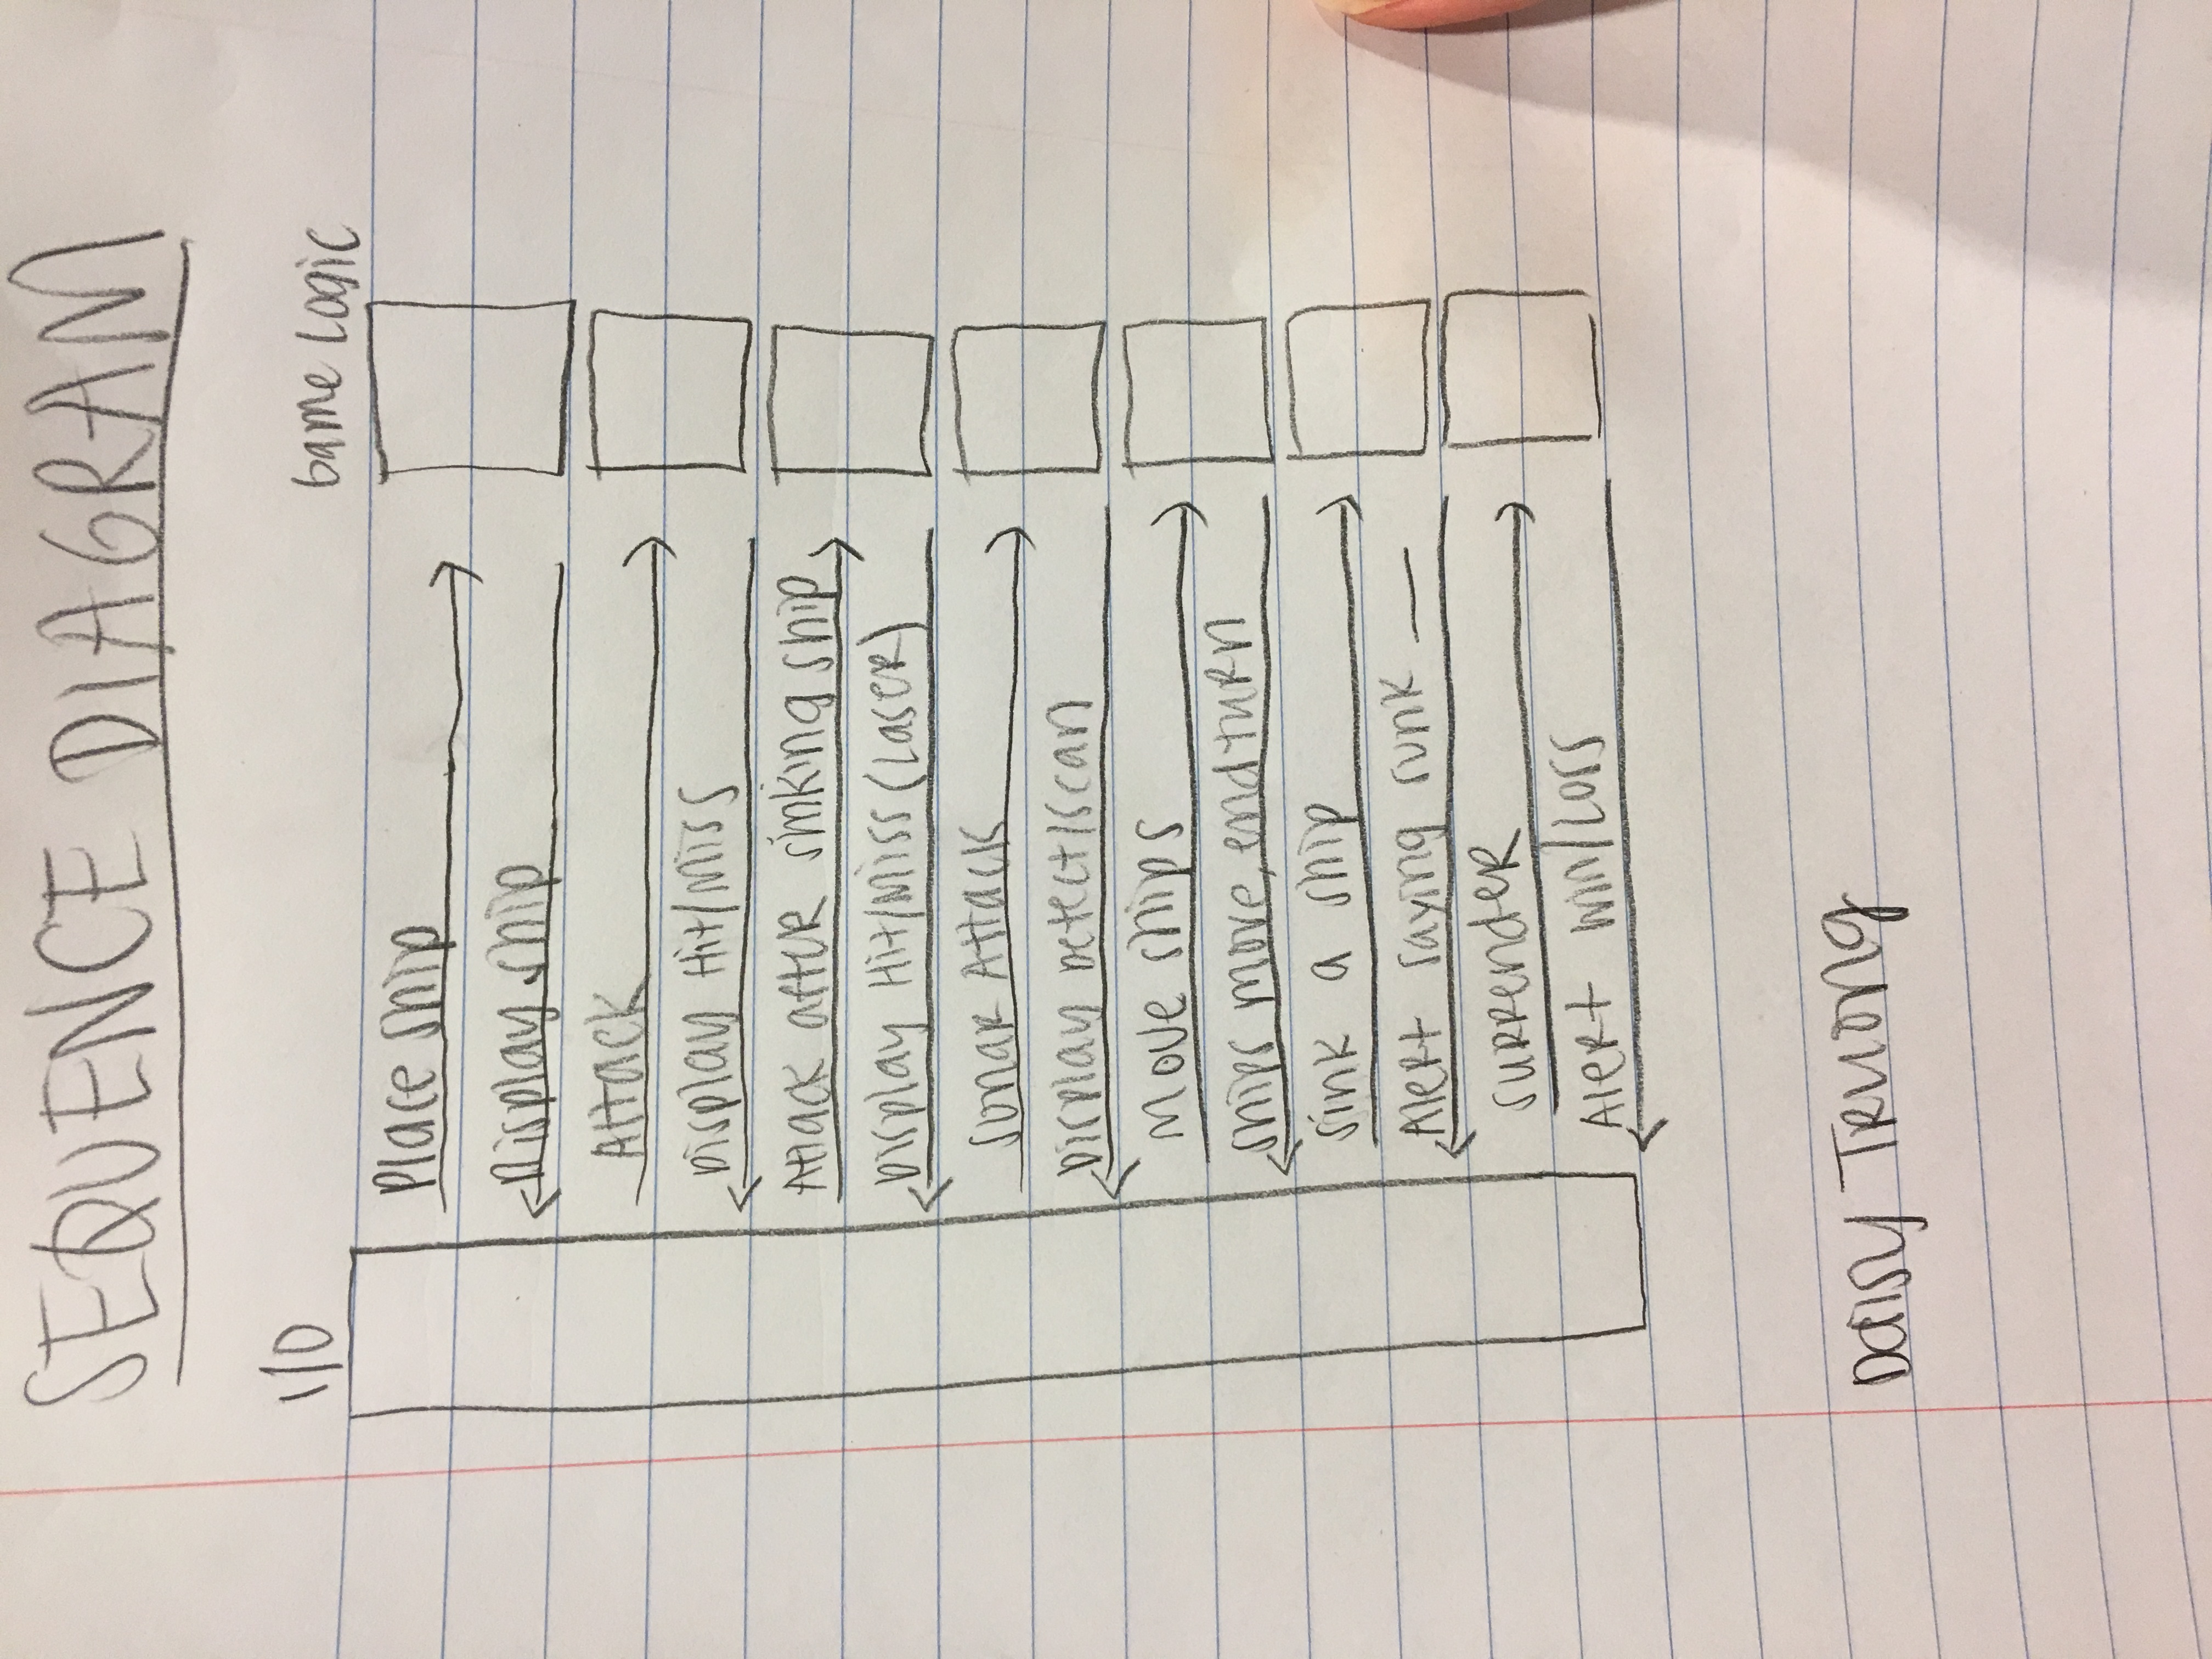 SEQUENCE DIAGRAM
I/O
Game Logic
Place ship
Display ship
Attack
Display Hit/Miss
Attack after sinking ship
Display Hit/Miss (Laser)
Sonar Attack
Display Detect/Scan
Move ships
Ships move, end turn
Sink a ship
Alert saying sunk __
Surrender
Alert Win/Loss
Daisy Truong